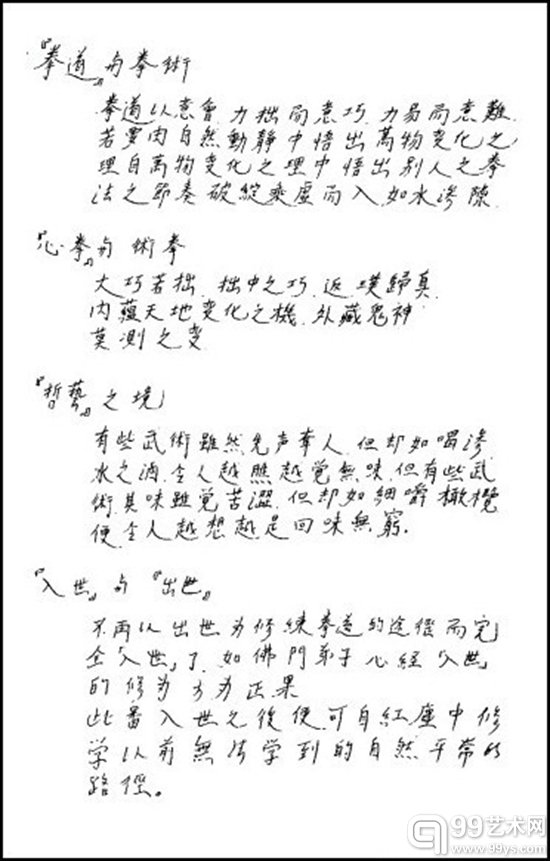 『拳道』与拳術
拳道以意會.力拙而意巧.力易而意難.
若要內自然動静中悟出萬物变化之
理自萬物变化之理中悟出别人之拳
法之節奏破綻乘虛而入.如水滲隙.
『心拳』与術拳
大巧若拙.拙中之巧.返璞歸真.
内蘊天地变化之機.外藏鬼神
莫測之变
『哲藝』之境
有些武術雖然先声奪人.但却如喝滲
水之酒.令人越醮越覚無味.但有些武
術其味雖覚苦澀.但却如細嚼橄欖
便令人越想越是回味無窮.
『入世』与『出世』
不再以出世为修練拳道的途徑而完
全「入世」了.如佛門弟子必經「入世」
的修为才为正果
此番入世之後便可自紅塵中修
学以前無法学到的自然平常的
路徑。
99艺术网
www.99ys.com